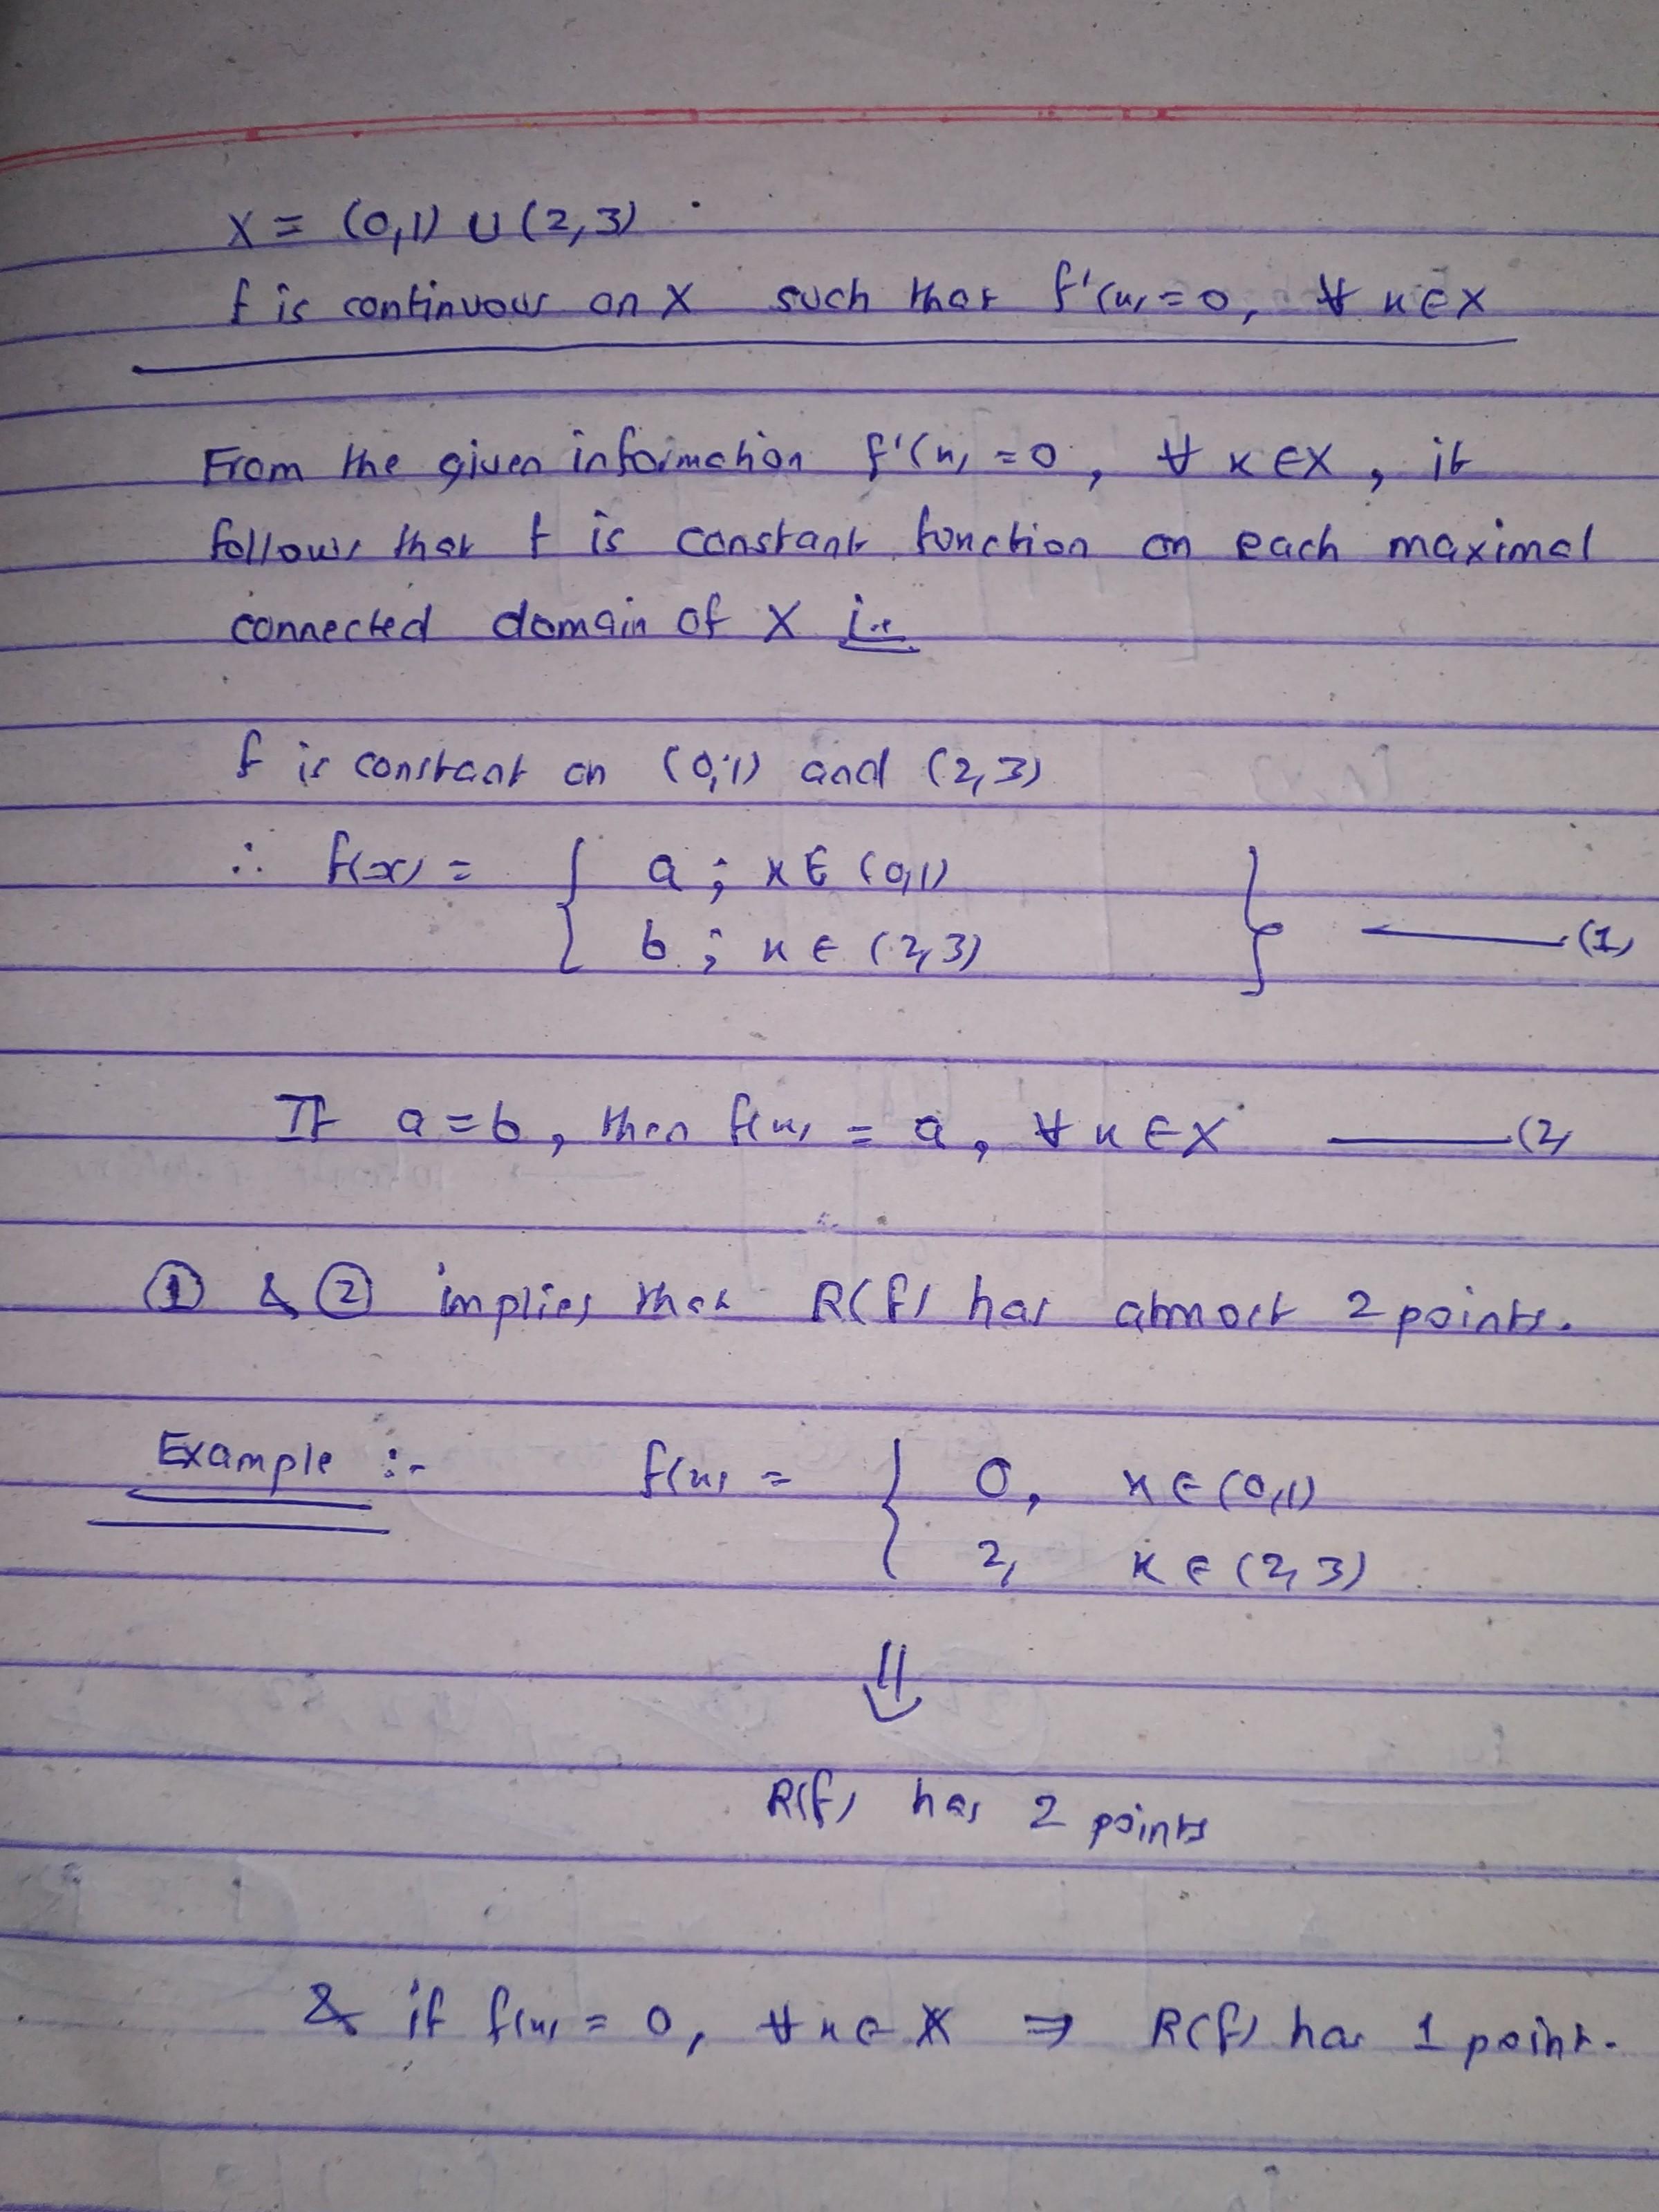 X = (0,1) ∪ (2,3)
f is continuous on X such that f'(x) = 0, ∀ x ∈ X
From the given information f'(x) = 0, ∀ x ∈ X, it
follows that f is constant function on each maximal
connected domain of X i.e
f is constant on (0,1) and (2,3)
∴ f(x) = { a ; x ∈ (0,1)
b ; x ∈ (2,3) } —— (1)
If a = b, then f(x) = a, ∀ x ∈ X —— (2)
① & ② implies that R(f) has atmost 2 points.
Example :- f(x) = { 0, x ∈ (0,1)
2, x ∈ (2,3)
⇓
R(f) has 2 points
& if f(x) = 0, ∀ x ∈ X ⇒ R(f) has 1 point.